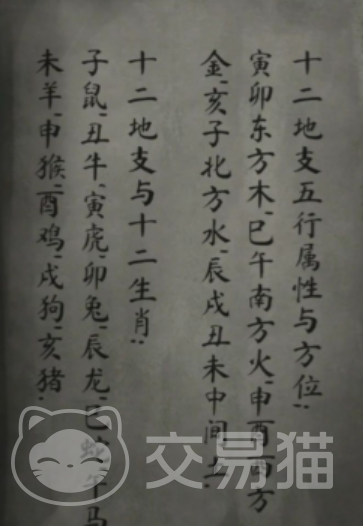 十二地支五行属性与方位：
寅卯东方木、巳午南方火、申酉西方
金、亥子北方水、辰戌丑未中间土：
十二地支与十二生肖：
子鼠、丑牛、寅虎、卯兔、辰龙、巳蛇、午马
未羊、申猴、酉鸡、戌狗、亥猪：
交易猫